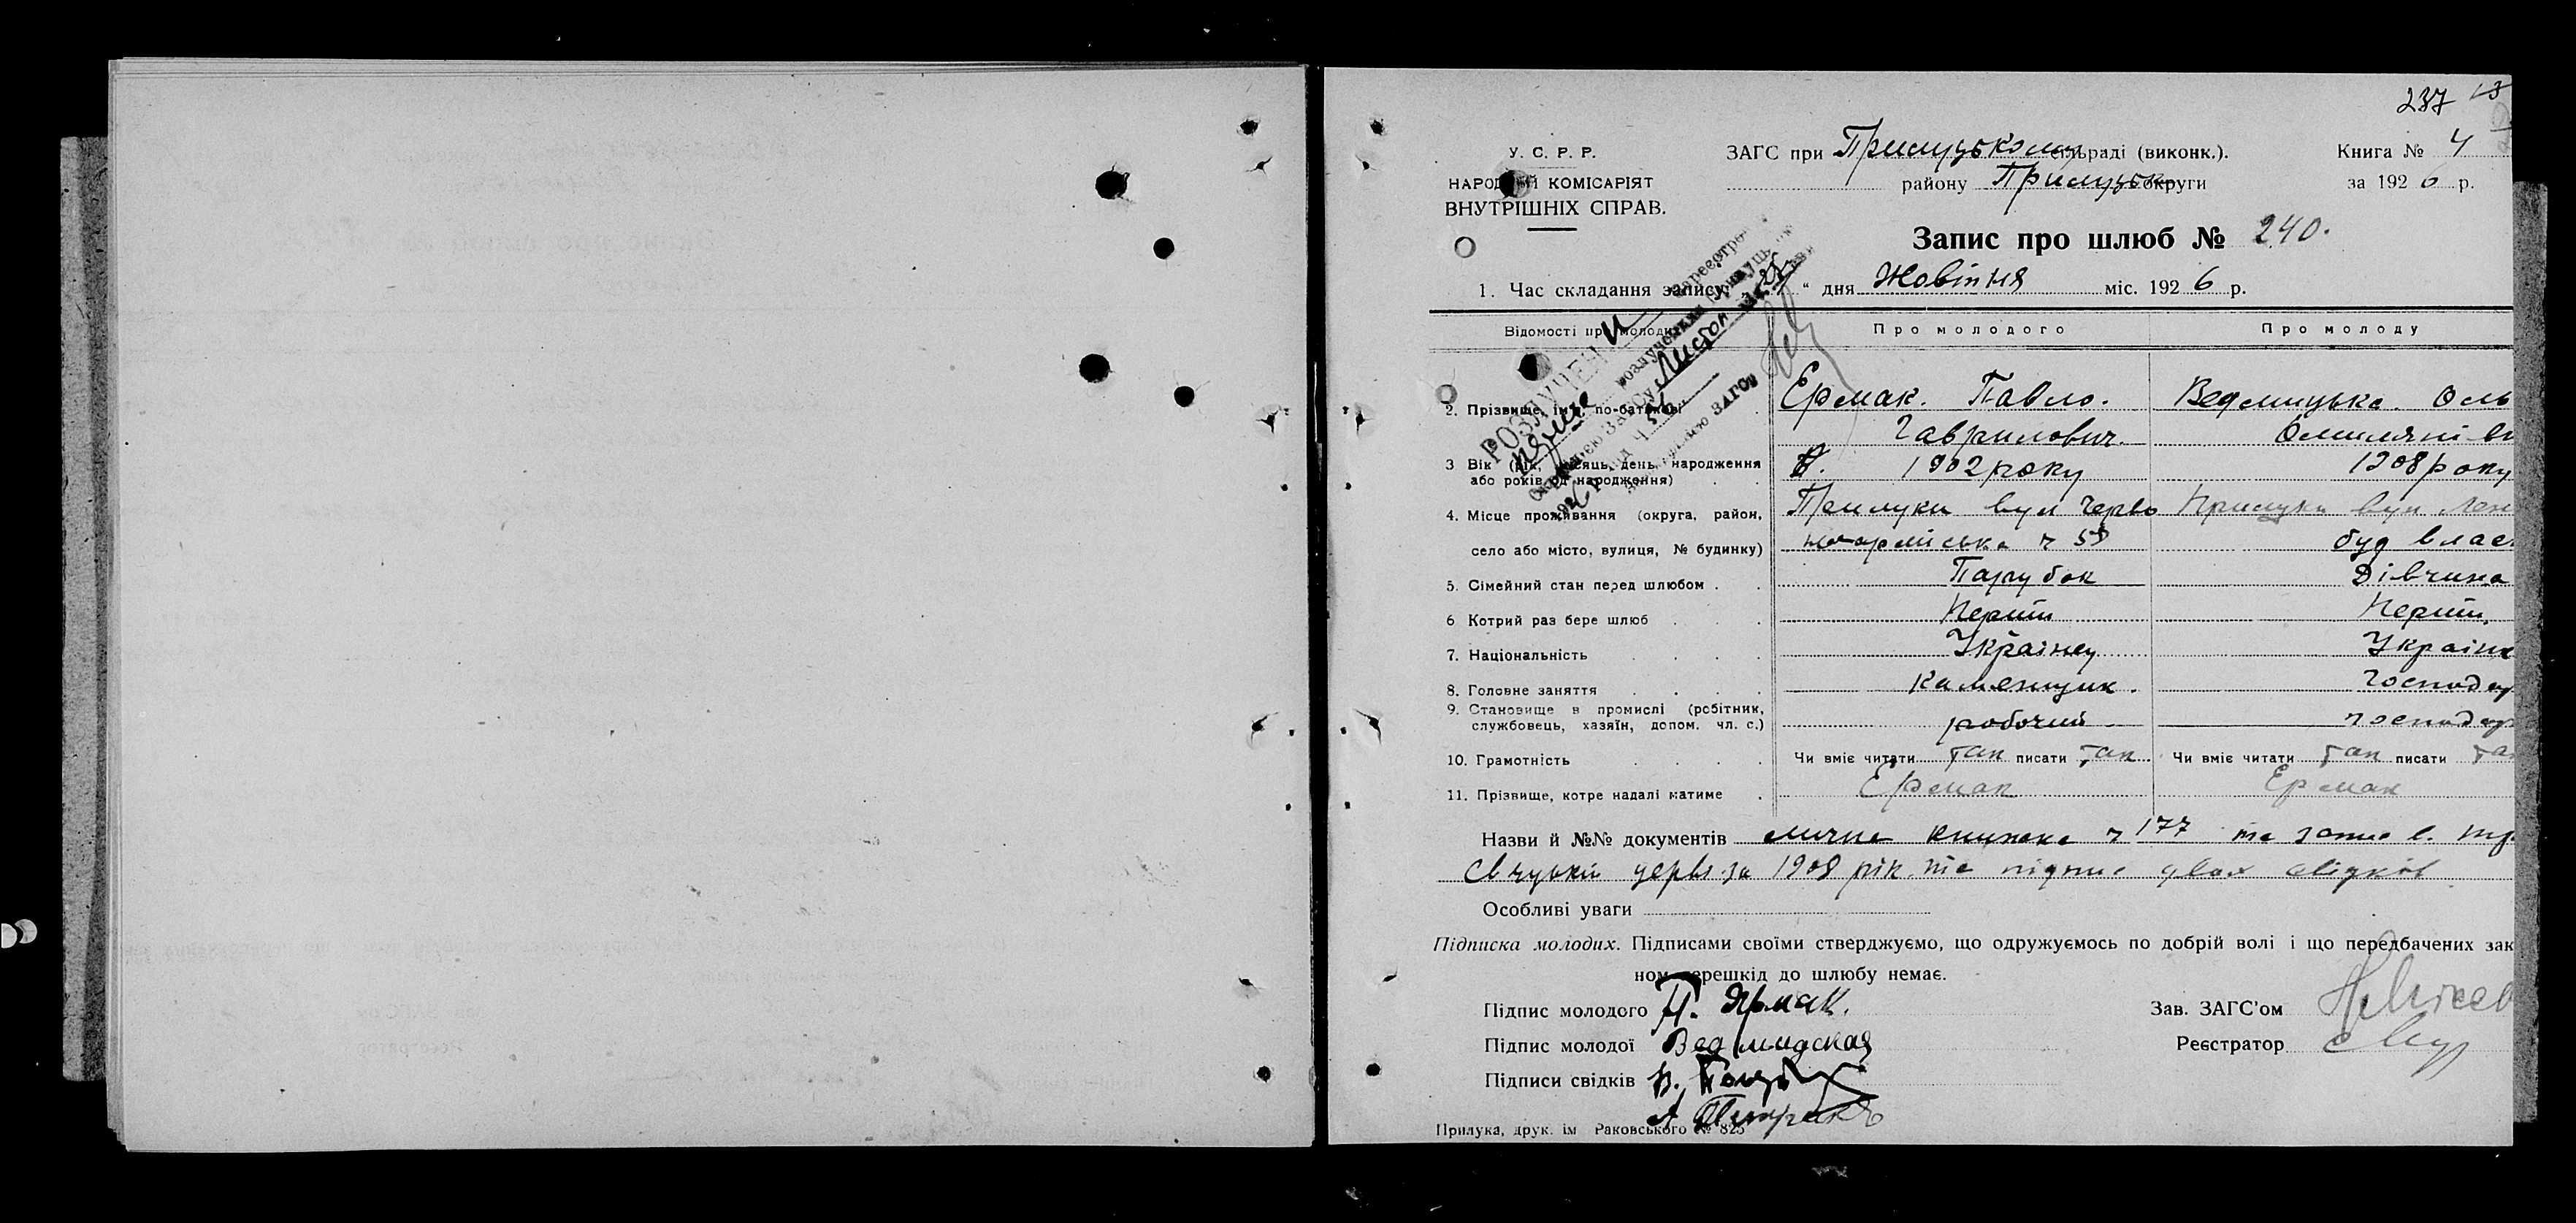 237 13
У. С. Р. Р.
НАРОДНИЙ КОМІСАРІЯТ
ВНУТРІШНІХ СПРАВ.
ЗАГС при Прилуцькому сільраді (виконк.).
району Прилуцьк округи
Книга № 4
за 1926 р.
Запис про шлюб № 240.
1. Час складання запису " дня Жовтня міс. 1926 р.
Відомості про молодих
Про молодого
Про молоду
РОЗЛУЧЕНІ
2. Прізвище, ім'я, по-батькові
Ермак. Павло.
Гаврилович.
Ведмицька. Оль
3 Вік (рік, місяць, день, народження
або років од народження)
1902 року
1908 року
4. Місце проживання (округа, район,
село або місто, вулиця, № будинку)
Прилуки вул Черво
ноармійська ч 59
Прилуки вул Лен
буд влас
5. Сімейний стан перед шлюбом .
Парубок
Дівчина
6 Котрий раз бере шлюб
Перший
Перший
7. Національність
Українец
Українк
8. Головне заняття
Каменщик.
господар
9. Становище в промислі (робітник,
службовець, хазяїн, допом. чл. с.)
робочий
господар
10. Грамотність
Чи вміє читати так писати так
Чи вміє читати так писати та
11. Прізвище, котре надалі матиме
Ермак
Ермак
Назви й №№ документів лична книжка ч 177 та запис
церкв за 1908 рік та підпис двох свідків
Особливі уваги
Підписка молодих. Підписами своїми стверджуємо, що одружуємось по добрій волі і що передбачених зак
ном перешкід до шлюбу немає.
Підпис молодого П. Ярмак.
Зав. ЗАГС'ом
Підпис молодої Ведмидская
Реєстратор
Підписи свідків
Прилука, друк. ім Раковського № 825